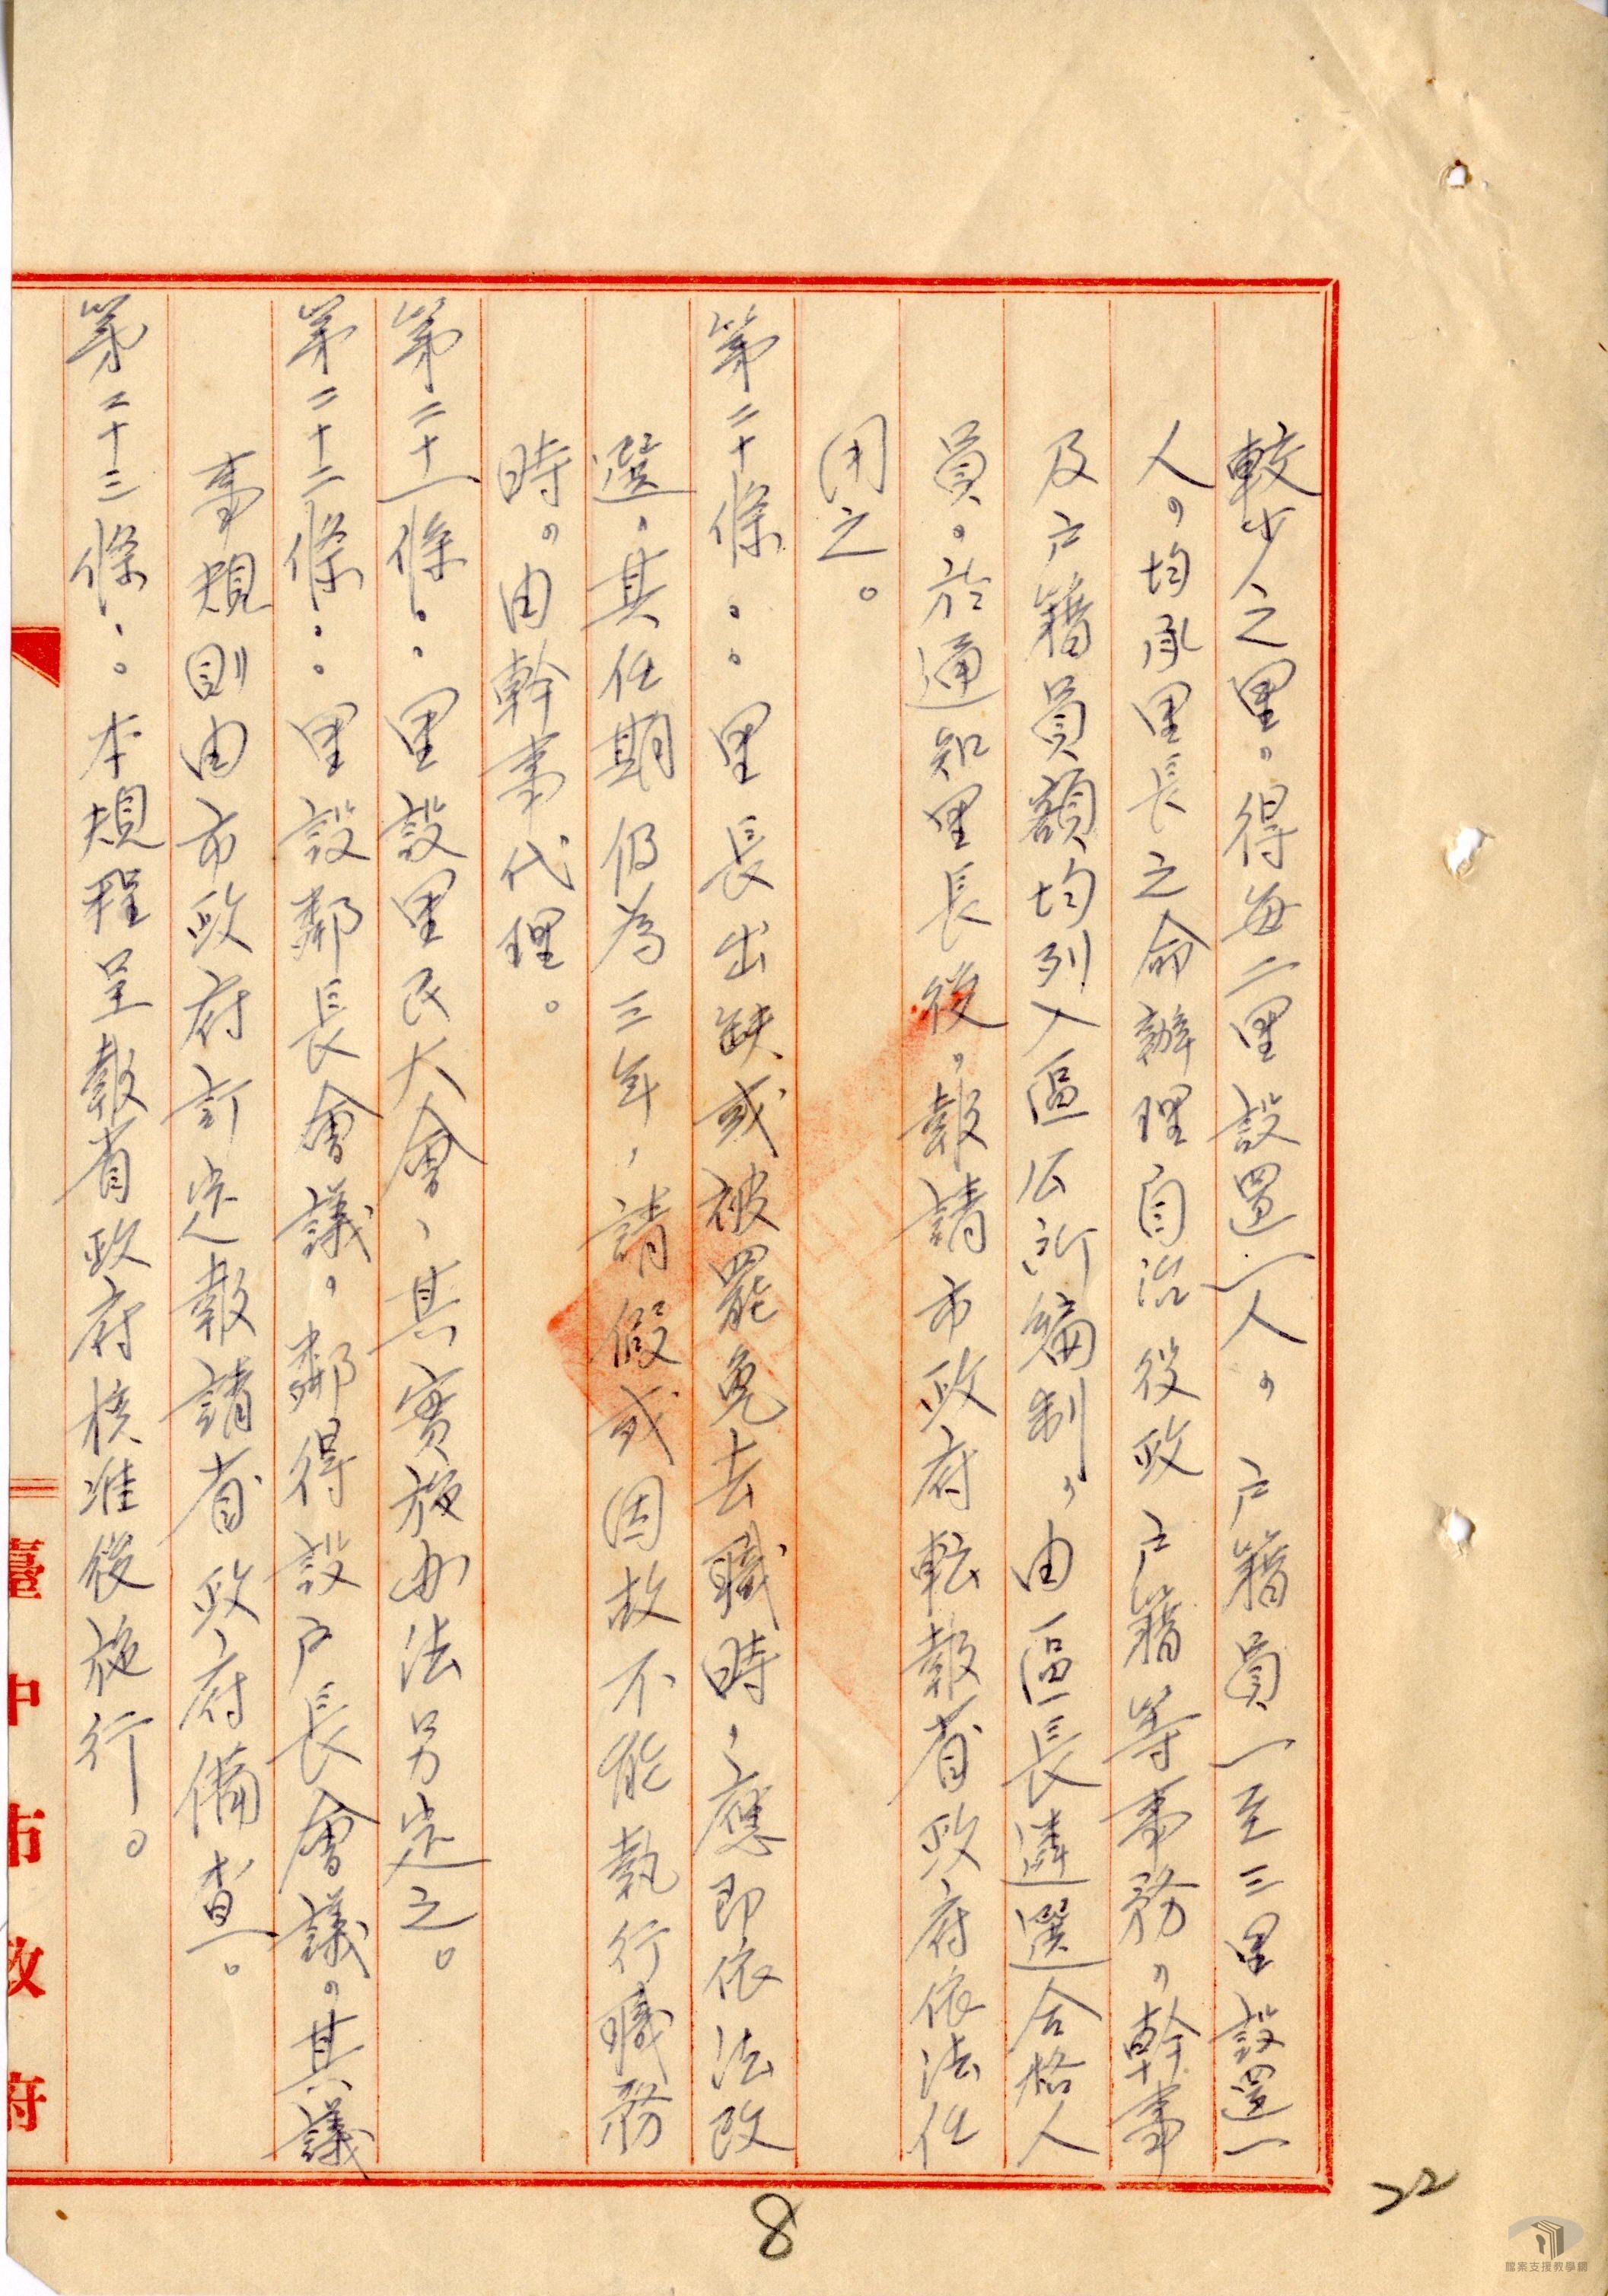 較少之里。得每二里設置一人。戶籍員一至三里設置一
人。均承里長之命辦理自治役政戶籍等事務。幹事
及戶籍員額均列入區公所編制。由區長遴選合格人
員。於通知里長後。報請市政府転報省政府依法任
用之。
第二十條：里長出缺或被罷免去職時、應即依法改
選。其任期仍為三年、請假或因故不能執行職務
時。由幹事代理。
第二十一條：里設里民大會、其實施办法另定之。
第二十二條：里設鄰長會議。鄰得設戶長會議。其議
事規則由市政府訂定報請省政府備查。
第二十三條：本規程呈報省政府核准後施行。
臺中市政府
8
22
檔案支援教學網